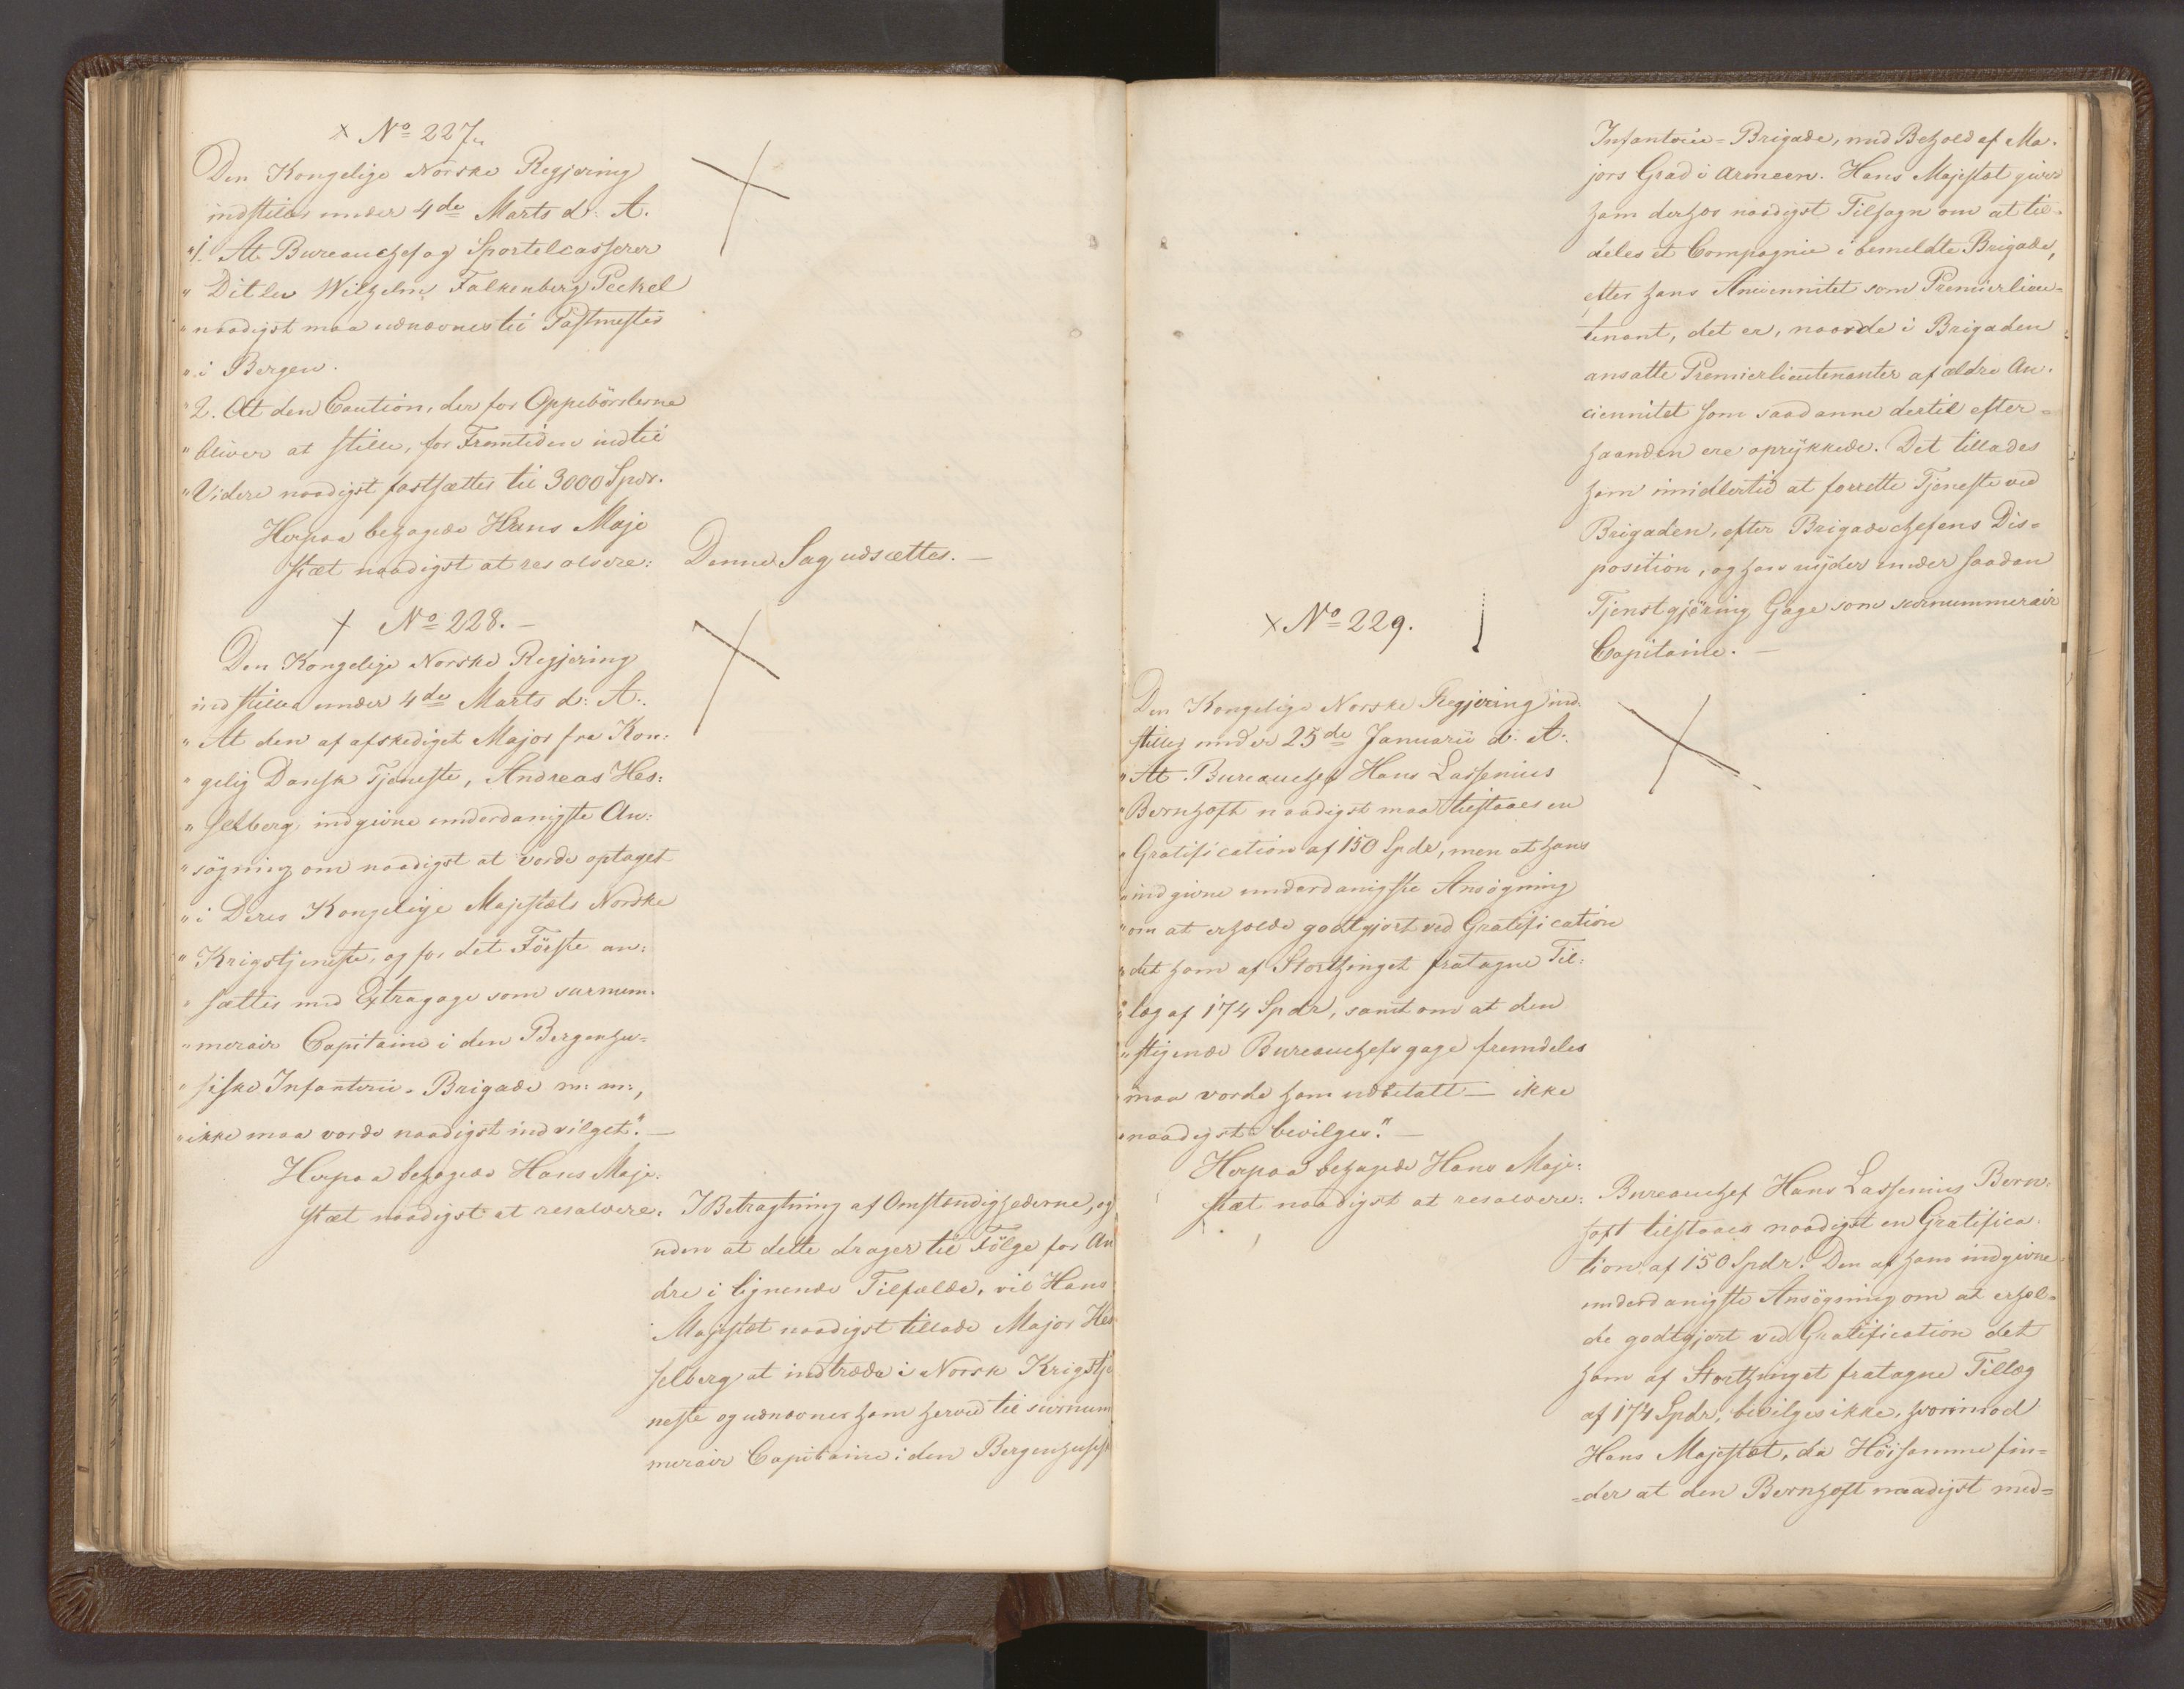 x No 227.
Den Kongelige Norske Regjering
indstiller under 4de Marts d: A.
"1. At Bureauchef og Sportelcasserer
" Ditlev Wilhelm Falkenberg Peckel
" naadigst maa udnævnes til Postmester
" i Bergen.
"2. At den Caution, der for Oppebörslerne
" bliver at stille, for Fremtiden indtil
" Videre naadigst fastsættes til 3000 Spdr.
Herpaa behagede Hans Maje
stæt naadigst at resolvere:
Denne Sag udsættes. —
x No 228. —
Den Kongelige Norske Regjering
indstiller under 4de Marts d: A.
" At den af afskediget Major fra Kon:
" gelig Dansk Tjeneste, Andreas Hes:
" selberg, indgivne underdanigste An:
" sögning om naadigst at vorde optaget
" i Deres Kongelige Majestæts Norske
" Krigstjeneste, og for det Förste an:
" sættes med Extragage som surnum.
" merair Capitaine i den Bergenhu=
" siske Infanterie-Brigade m: m:,
" ikke maa vorde naadigst indvilget." —
Herpaa behagede Hans Maje:
stæt naadigst at resolvere:
I Betragtning af Omstændighederne, og
uden at dette drager til Fölge for An
dre i lignende Tilfælde, vil Hans
Majestæt naadigst tillade Major Hes
selberg at indtræde i Norsk Krigstje
neste og udnævner ham herved til surnum
merair Capitaine i den Bergenhusis
Infanterie-Brigade, med Behold af Ma.
jors Grad i Armeen. Hans Majestæt giver
ham derhos naadigst Tilsagn om at til-
deles et Compagnie i bemeldte Brigade,
efter hans Anciennitet som Premierlieu-
tenant, det er, naar de i Brigaden
ansatte Premierlieutenanter af ældre An.
ciennitet som saadanne dertil efter=
haanden ere oprykkede. Det tillades
ham imidlertid at forrette Tjeneste ved
Brigaden, efter Brigadechefens Dis=
position, og han nyder under saadan
Tjenstgjöring Gage som surnummerair
Capitaine. —
x No 229.
Den Kongelige Norske Regjering ind.
stiller under 25de Januarii d: A:
" At Bureauchef Hans Lassenius
" Bernhoft naadigst maa tilstaaes en
" Gratification af 150 Spdr, men at hans
" indgivne underdanigste Ansögning
" om at erholde godtgjort ved Gratification
" det ham af Storthinget fratagne Til:
" læg af 174 Spdr, samt om at den
" stigende Bureauchefs gage fremdeles
" maa vorde ham udbetalt — ikke
" naadigst bevilges." —
Herpaa behagede Hans Maje:
stæt naadigst at resolvere:
Bureauchef Hans Lassenius Bern:
hoft tilstaaes naadigst en Gratifica.
tion af 150 Spdr. Den af ham indgivne
underdanigste Ansögning om at erhol-
de godtgjort ved Gratification det
ham af Storthinget fratagne Tillæg
af 174 Spdr, bevilges ikke, hvorimod
Hans Majestæt, da Höisamme fin=
=der at den Bernhoft naadigst med=